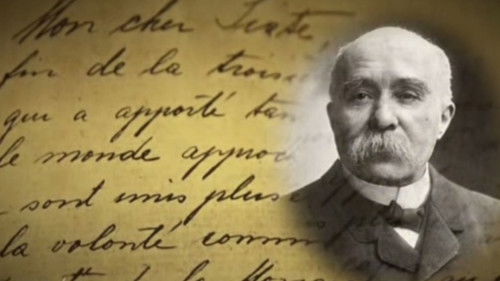 Mon cher
fin de la trois
qui a apporté tan
le monde approc
sont unis plus
la volonté comm
de la